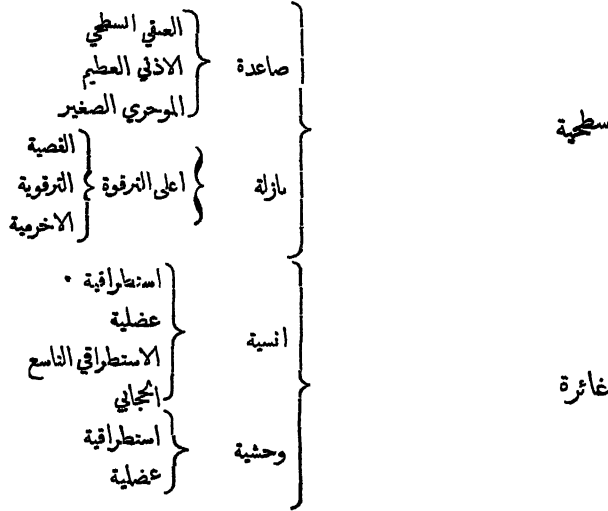 سطحية
صاعدة
العنقي السطحي
الاذني العظيم
الموخري الصغير
نازلة
اعلى الترقوة
القصية
الترقوية
الاخرمية
غائرة
انسية
استطراقية
عضلية
الاستطراقي التاسع
الحجابي
وحشية
استطراقية
عضلية